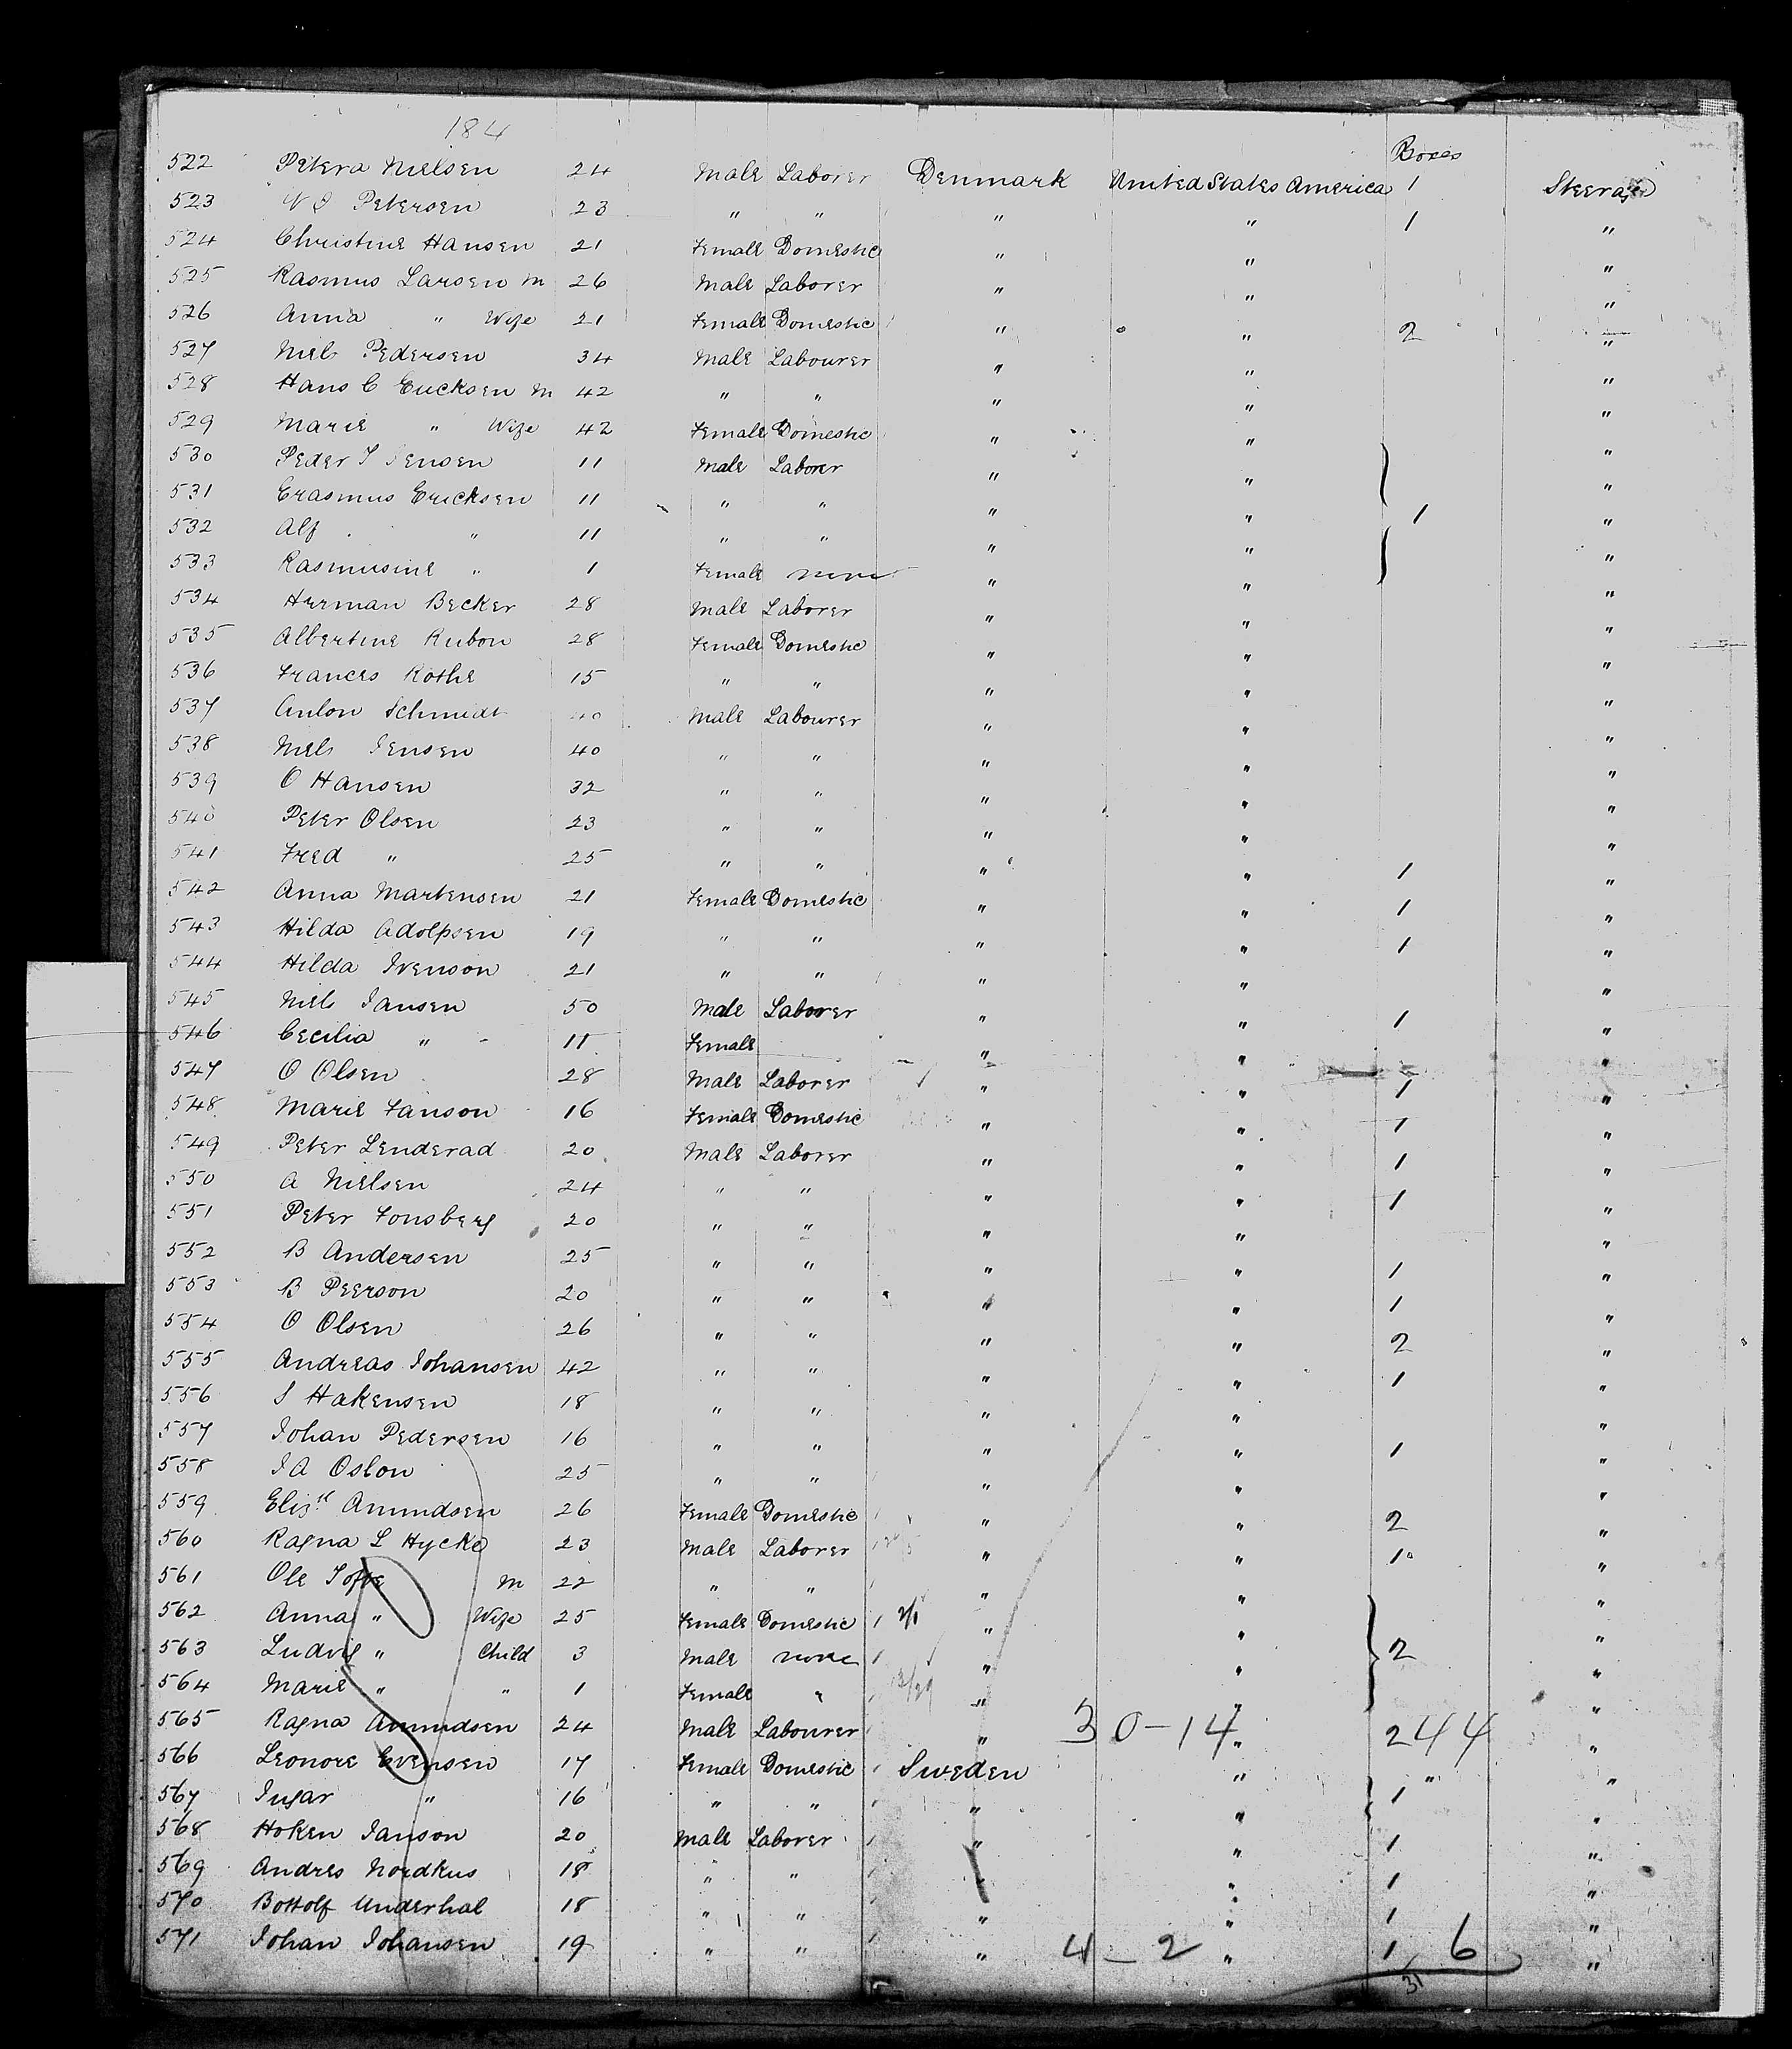 184
Boxes
522 Petera Nielsen 24 Male Laborer Denmark United States America 1 Steerage
523 Petersen 23 " " " " 1 "
524 Christine Hansen 21 Female Domestic " " "
525 Rasmus Larsen M 26 Male Laborer " " "
526 Anna " Wife 21 Female Domestic " " 2 "
527 Niels Pedersen 34 Male Labourer " " "
528 Hans C Ericksen M 42 " " " " "
529 Marie " Wife 42 Female Domestic " " "
530 Peder Jensen 11 Male Laborer " " "
531 Erasmus Ericksen 11 " " " " 1 "
532 Alf " 11 " " " " "
533 Rasmusine " 1 Female none " " "
534 Herman Becker 28 Male Laborer " " "
535 Albertine Rubon 28 Female Domestic " " "
536 Frances Rothe 15 " " " " "
537 Anton Schmidt 40 Male Labourer " " "
538 Niels Jensen 40 " " " " "
539 O Hansen 32 " " " " "
540 Peter Olsen 23 " " " " "
541 Fred " 25 " " " " 1 "
542 Anna Martensen 21 Female Domestic " " 1 "
543 Hilda Adolpsen 19 " " " " 1 "
544 Hilda Ivenson 21 " " " " "
545 Niels Jansen 50 Male Laborer " " 1 "
546 Cecilia " 11 Female " " "
547 O Olsen 28 Male Laborer " " 1 "
548 Marie Janson 16 Female Domestic " " 1 "
549 Peter Lenderad 20 Male Laborer " " 1 "
550 A Nielsen 24 " " " " 1 "
551 Peter Fonsberg 20 " " " " "
552 B Andersen 25 " " " " 1 "
553 B Peerson 20 " " " " 1 "
554 O Olsen 26 " " " " 2 "
555 Andreas Johansen 42 " " " " 1 "
556 S Hakensen 18 " " " " "
557 Johan Pedersen 16 " " " " 1 "
558 J A Oslon 25 " " " " "
559 Elizth Amundsen 26 Female Domestic " " 2 "
560 Ragna L Hycke 23 Male Laborer " " 1 "
561 Ole Tofte M 22 " " " " "
562 Anna " Wife 25 Female Domestic " " "
563 Ludvig " Child 3 Male none " " 2 "
564 Marie " " 1 Female " " " "
565 Ragna Amundsen 24 Male Labourer " 30-14 " 244 "
566 Leonore Evensen 17 Female Domestic Sweden " " "
567 Ingar " 16 " " " " 1 "
568 Hoken Janson 20 Male Laborer " " 1 "
569 Andres Nordkus 18 " " " " 1 "
570 Bottolf Underhal 18 " " " " 1 "
571 Johan Johansen 19 " " " 4-2 " 1 6 "
31